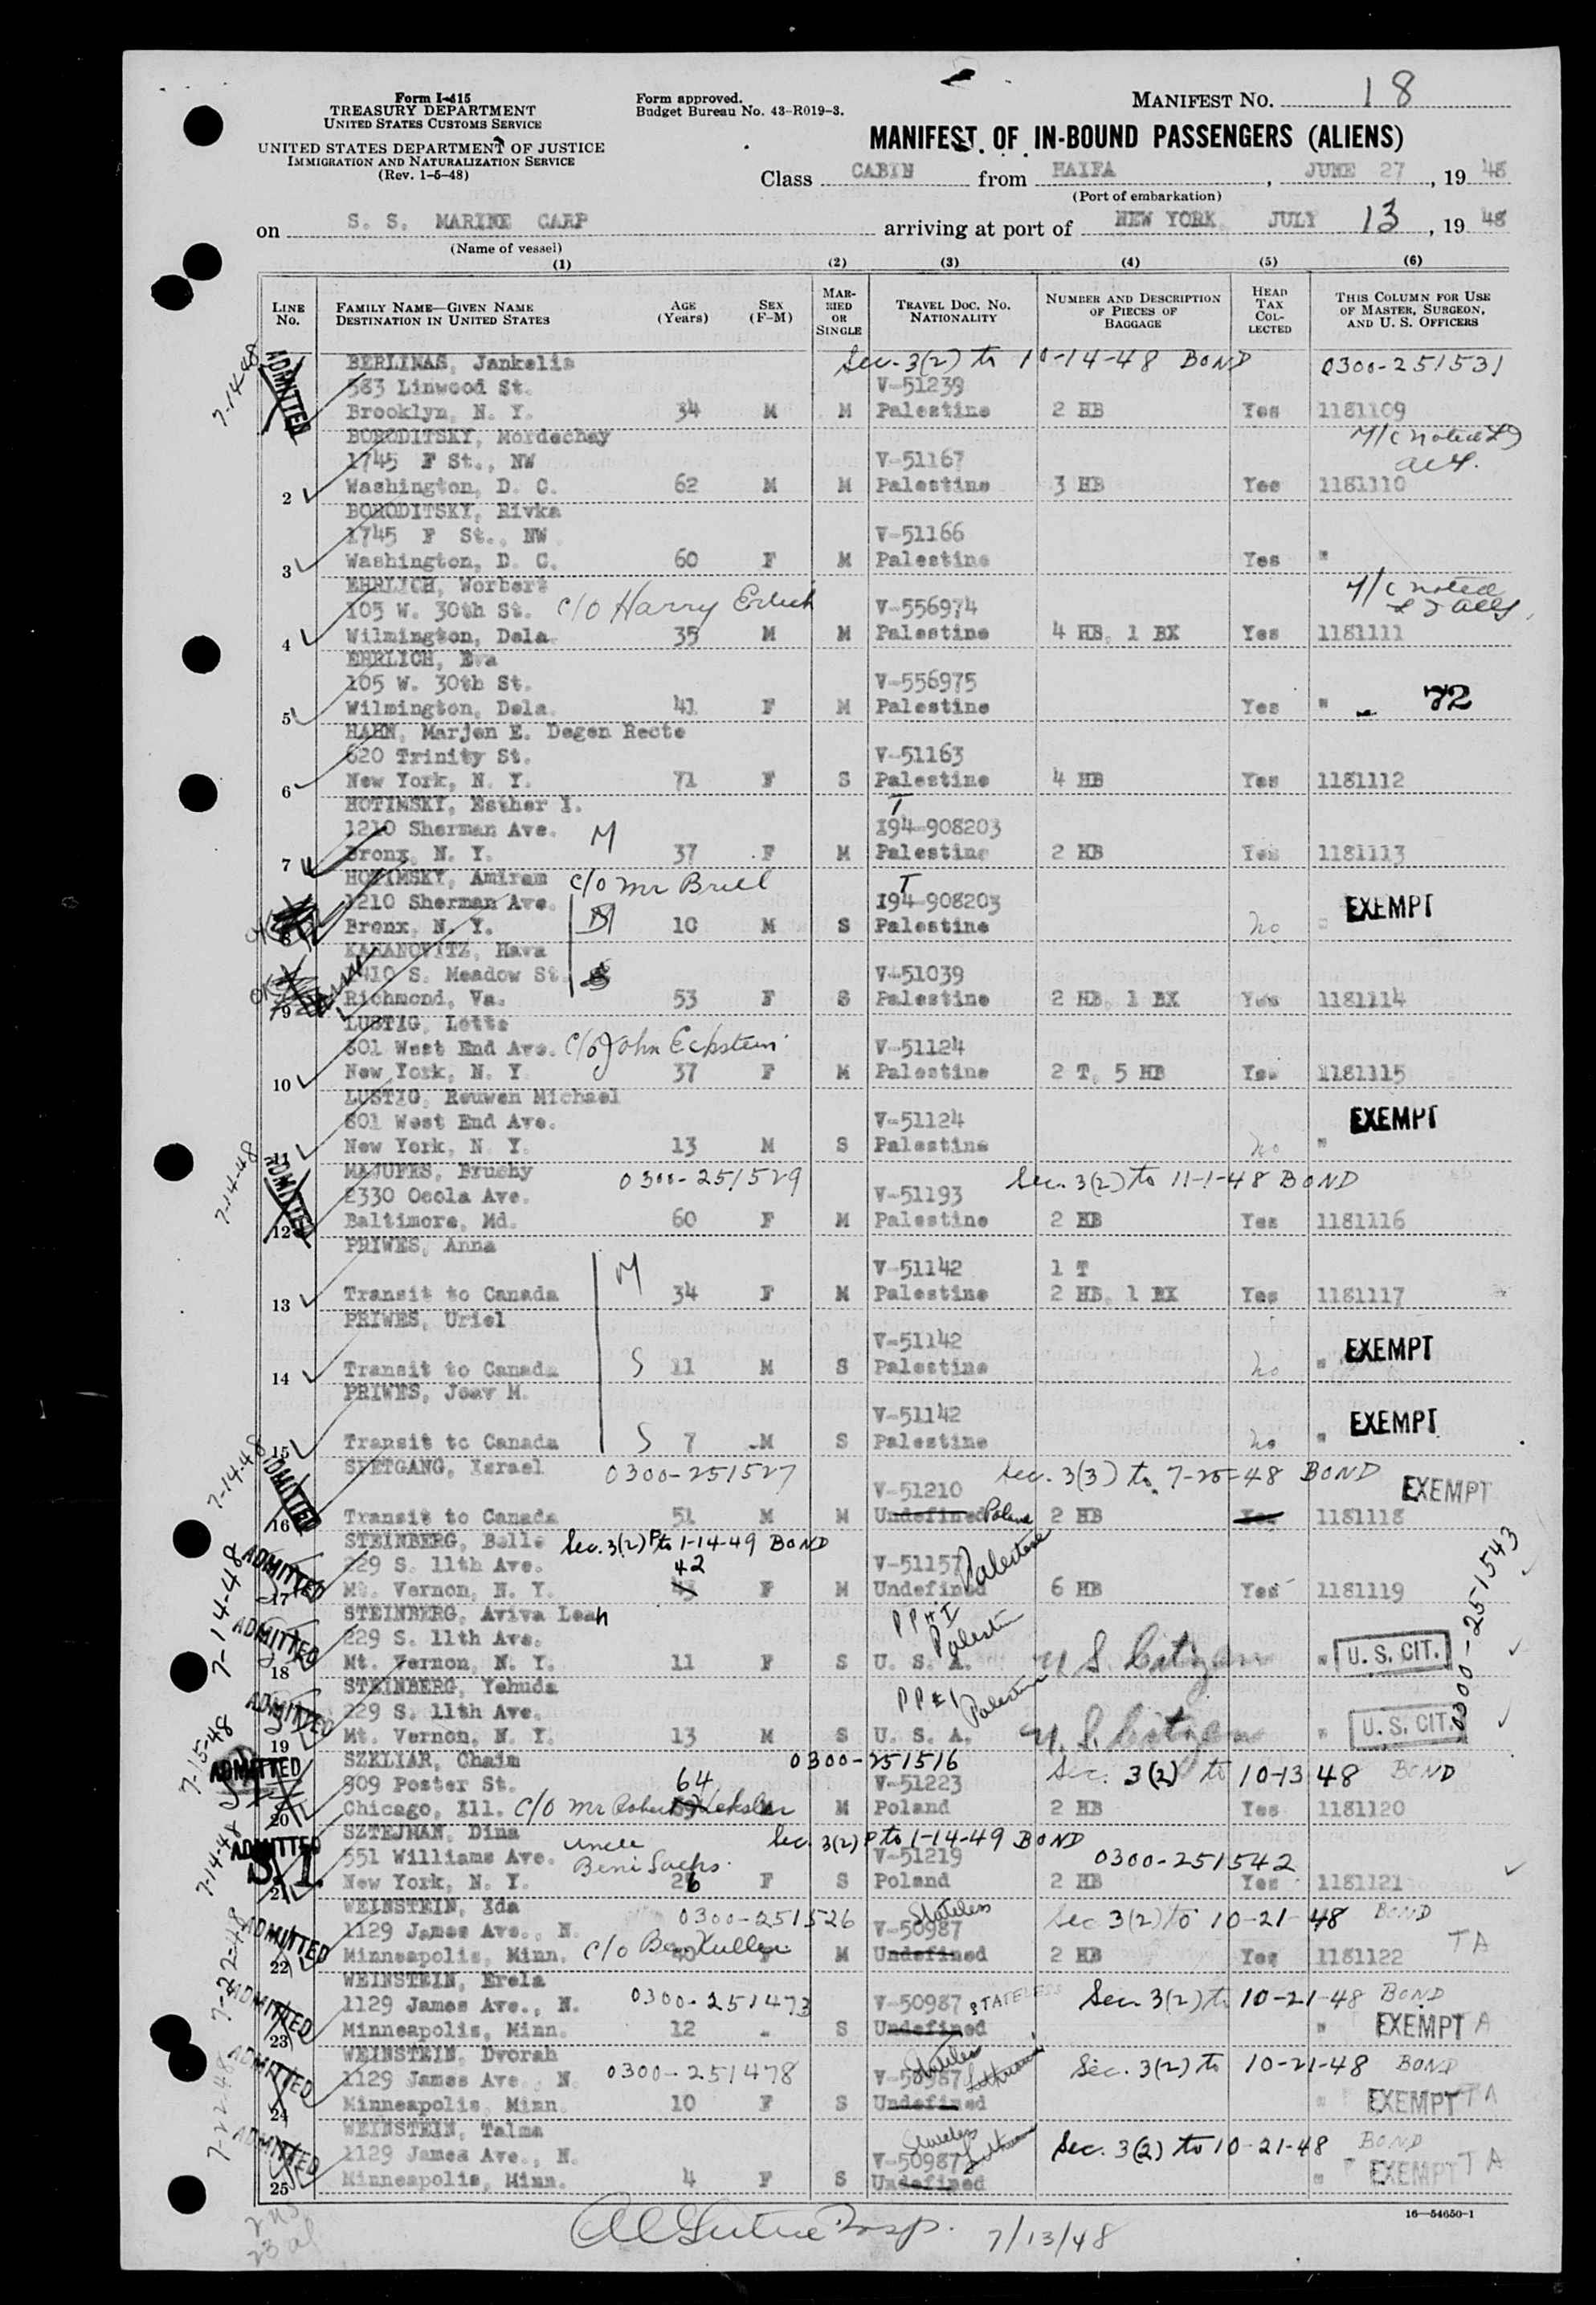 Form I-415
TREASURY DEPARTMENT
UNITED STATES CUSTOMS SERVICE
UNITED STATES DEPARTMENT OF JUSTICE
IMMIGRATION AND NATURALIZATION SERVICE
(Rev. 1-5-48)
Form approved.
Budget Bureau No. 43-R019-3.
MANIFEST NO. 18
MANIFEST OF IN-BOUND PASSENGERS (ALIENS)
Class CABIN from HAIFA, JUNE 27, 1948
(Port of embarkation)
on S. S. MARINE CARP arriving at port of NEW YORK JULY 13, 1948
(Name of vessel)
(1) (2) (3) (4) (5) (6)
LINE NO. FAMILY NAME—GIVEN NAME DESTINATION IN UNITED STATES AGE (YEARS) SEX (F-M) MARRIED OR SINGLE TRAVEL DOC. NO. NATIONALITY NUMBER AND DESCRIPTION OF PIECES OF BAGGAGE HEAD TAX COLLECTED THIS COLUMN FOR USE OF MASTER, SURGEON, AND U. S. OFFICERS
7-14-48 ADMITTED BERLINAS, Jankelis Sec. 3(2) to 10-14-48 BOND 0300-251531
583 Linwood St. V-51239
Brooklyn, N. Y. 34 M M Palestine 2 HB Yes 1181109
BORODITSKY, Mordechay M/c noted
1745 F St., NW V-51167
2 Washington, D. C. 62 M M Palestine 3 HB Yes 1181110
BORODITSKY, Rivka
1745 F St., NW V-51166
3 Washington, D. C. 60 F M Palestine Yes "
EHRLICH, Worbert M/c noted
105 W. 30th St. c/o Harry Erlich V-556974
4 Wilmington, Dela. 35 M M Palestine 4 HB, 1 BX Yes 1181111
EHRLICH, Eva
105 W. 30th St. V-556975
5 Wilmington, Dela. 41 F M Palestine Yes " 72
HAHN, Marjen E. Degen Recte
620 Trinity St. V-51163
6 New York, N. Y. 71 F S Palestine 4 HB Yes 1181112
HOTIMSKY, Esther I. T
1210 Sherman Ave. M I94-908203
7 Bronx, N. Y. 37 F M Palestine 2 HB Yes 1181113
HOTIMSKY, Amiram c/o Mr Brill T
1210 Sherman Ave. I94-908203 EXEMPT
8 Bronx, N. Y. 10 M S Palestine no "
KABANOVITZ, Hava
1410 S. Meadow St. V-51039
9 Richmond, Va. 53 F S Palestine 2 HB, 1 BX Yes 1181114
LUSTIG, Lotte
801 West End Ave. c/o John Eckstein V-51124
10 New York, N. Y. 37 F M Palestine 2 T, 5 HB Yes 1181115
LUSTIG, Reuwen Michael
801 West End Ave. V-51124 EXEMPT
11 New York, N. Y. 13 M S Palestine no "
7-14-48 ADMITTED MAJUFES, Fruchy 0300-251529 Sec. 3(2) to 11-1-48 BOND
2330 Ocola Ave. V-51193
12 Baltimore, Md. 60 F M Palestine 2 HB Yes 1181116
PRIWES, Anna M
V-51142 1 T
13 Transit to Canada 34 F M Palestine 2 HB, 1 BX Yes 1181117
PRIWES, Uriel
V-51142 EXEMPT
14 Transit to Canada S 11 M S Palestine no "
PRIWES, Joav M.
V-51142 EXEMPT
15 Transit to Canada S 7 M S Palestine no "
7-14-48 ADMITTED SPETGANG, Israel 0300-251527 Sec. 3(3) to 7-25-48 BOND
V-51210 EXEMPT
16 Transit to Canada 51 M M Undefined Poland 2 HB Yes 1181118
ADMITTED STEINBERG, Belle Sec. 3(2) P to 1-14-49 BOND
229 S. 11th Ave. 42 V-51157 Palestine
17 Mt. Vernon, N. Y. 43 F M Undefined 6 HB Yes 1181119
7-14-48 ADMITTED STEINBERG, Aviva Leah PP#I Palestine 0300-251543
229 S. 11th Ave.
18 Mt. Vernon, N. Y. 11 F S U. S. A. U S Citizen " U. S. CIT.
ADMITTED STEINBERG, Yehuda PP#1 Palestine
229 S. 11th Ave.
19 Mt. Vernon, N. Y. 13 M S U. S. A. U. S. Citizen " U. S. CIT.
7-15-48 ADMITTED SZKLIAR, Chaim 0300-251516
809 Foster St. 64 V-51223 Sec. 3(2) to 10-13-48 BOND
20 Chicago, Ill. c/o Mr Robert M Poland 2 HB Yes 1181120
7-14-48 ADMITTED SZTEJMAN, Dina Uncle Sec. 3(2) P to 1-14-49 BOND
S.I. 551 Williams Ave. Beni Sachs V-51219 0300-251542
21 New York, N. Y. 26 F S Poland 2 HB Yes 1181121
ADMITTED WEINSTEIN, Ida 0300-251526 Stateless
1129 James Ave., N. V-50987 Sec 3(2) to 10-21-48 BOND
22 Minneapolis, Minn. c/o Ben Kuller 40 F M Undefined 2 HB Yes 1181122 TA
7-22-48 ADMITTED WEINSTEIN, Erela
1129 James Ave., N. 0300-251473 V-50987 STATELESS Sec. 3(2) to 10-21-48 BOND
23 Minneapolis, Minn. 12 S Undefined " EXEMPT TA
ADMITTED WEINSTEIN, Dvorah Stateless
1129 James Ave., N. 0300-251478 V-50987 Lithuania Sec. 3(2) to 10-21-48 BOND
24 Minneapolis, Minn. 10 F S Undefined " EXEMPT TA
7-22-48 ADMITTED WEINSTEIN, Talma Stateless
1129 James Ave., N. V-50987 Sec. 3(2) to 10-21-48 BOND
25 Minneapolis, Minn. 4 F S Undefined " EXEMPT TA
16—54650-1
Insp. 7/13/48